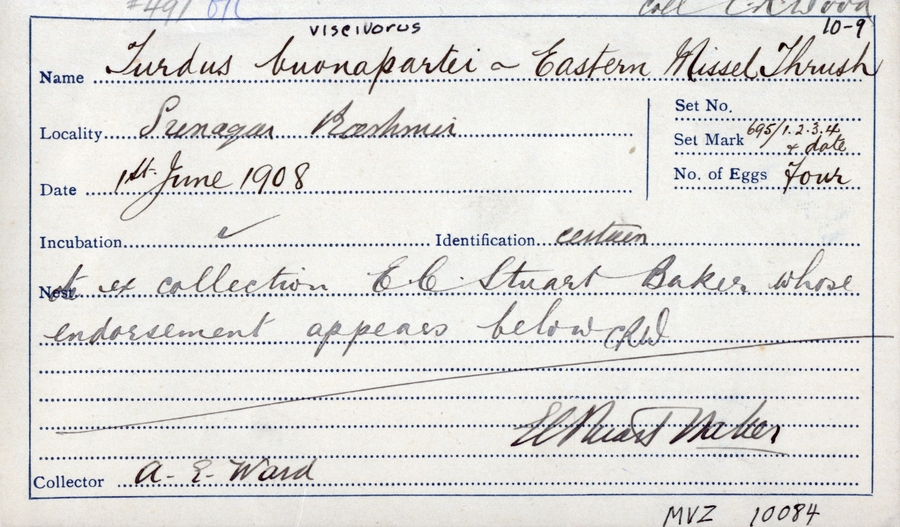 #491 coll C R Wood
viscivorus 10-9
Name Turdus buonapartei ~ Eastern Missel Thrush
Set No.
Locality Srenagar Kashmir
Set Mark 695/1.2.3.4 & date
Date 1st June 1908
No. of Eggs Four
Incubation ✓ Identification certain
Nest ex collection E C Stuart Baker whose
endorsement appears below CRW
EC Stuart Baker
Collector A. E. Ward
MVZ 10084